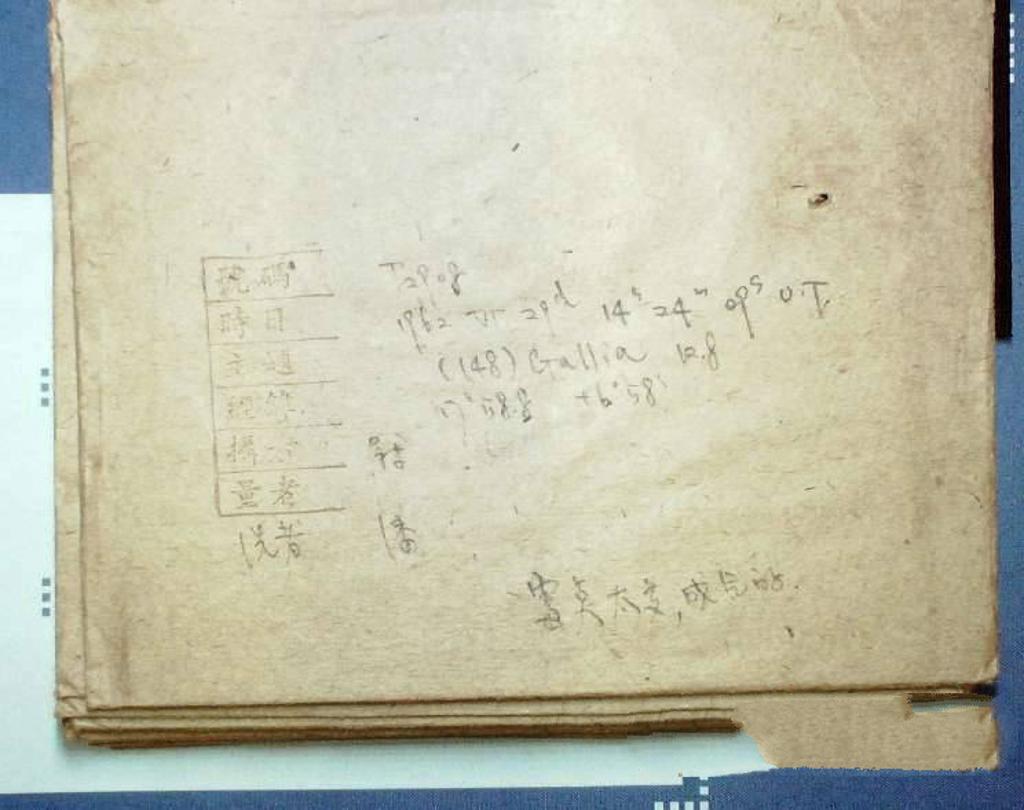 號碼 T2908
時日 1962 VI 29d 14h 24m 09s U.T.
主題 (148) Gallia 12.8
17h 58.8 +6°58'
攝者
量者
洗者 潘
雲 太, 成